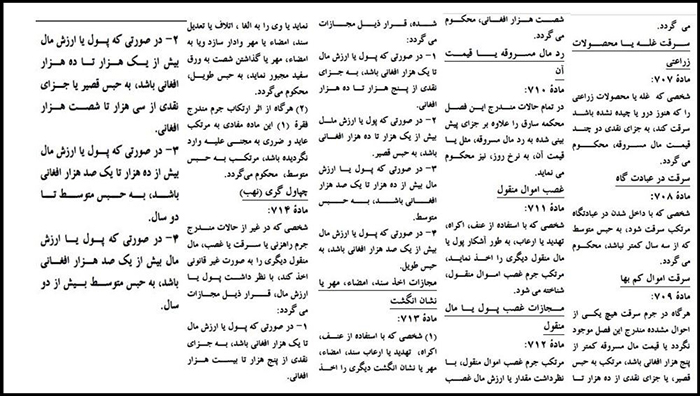 می گردد.
سرقت غله یا محصولات
زراعتی
مادهٔ ۷۰۷:
شخصی که غله یا محصولات زراعتی
را که هنوز درو یا چیده نشده باشد
سرقت کند، به جزای نقدی دو چند
قیمت مال مسروقه، محکوم
می گردد.
سرقت در عبادت گاه
مادهٔ ۷۰۸:
شخصی که با داخل شدن در عبادتگاه
مرتکب سرقت شود، به حبس متوسط
که از سه سال کمتر نباشد، محکوم
می گردد.
سرقت اموال کم بها
مادهٔ ۷۰۹:
هرگاه در جرم سرقت هیچ یکی از
احوال مشدده مندرج این فصل موجود
نگردد یا قیمت مال مسروقه کمتر از
پنج هزار افغانی باشد، مرتکب به حبس
قصیر، یا جزای نقدی از ده هزار تا
شصت هزار افغانی، محکوم
می گردد.
رد مال مسروقه یا قیمت
آن
مادهٔ ۷۱۰:
در تمام حالات مندرج این فصل
محکمه سارق را علاوه بر جزای پیش
بینی شده به رد مال مسروقه، مثل یا
قیمت آن، به نرخ روز، نیز محکوم
می نماید.
غصب اموال منقول
مادهٔ ۷۱۱:
شخصی که با استفاده از عنف، اکراه،
تهدید یا ارعاب، به طور آشکار پول یا
مال منقول دیگری را اخذ نماید،
مرتکب جرم غصب اموال منقول،
شناخته می شود.
مجازات غصب پول یا مال
منقول
مادهٔ ۷۱۲:
مرتکب جرم غصب اموال منقول، با
نظرداشت مقدار یا ارزش مال غصب
شده، قرار ذیل مجازات
می گردد:
۱- در صورتی که پول یا ارزش مال
تا یک هزار افغانی باشد، به جزای
نقدی از پنج هزار تا ده هزار
افغانی.
۲- در صورتی که پول یا ارزش مال
بیش از یک هزار تا ده هزار افغانی
باشد، به حبس قصیر.
۳- در صورتی که پول یا ارزش
مال بیش از ده هزار تا یک صد هزار
افغانی باشد، به حبس
متوسط.
۴- در صورتی که پول یا ارزش مال
بیش از یک صد هزار افغانی باشد، به
حبس طویل.
مجازات اخذ سند، امضاء، مهر یا
نشان انگشت
مادهٔ ۷۱۳:
(۱) شخصی که با استفاده از عنف،
اکراه، تهدید یا ارعاب سند، امضاء،
مهر یا نشان انگشت دیگری را اخذ
نماید یا وی را به الغا ، اتلاف یا تعدیل
سند، امضاء یا مهر وادار سازد ویا به
امضاء، مهر یا گذاشتن شصت به ورق
سفید مجبور نماید، به حبس طویل،
محکوم می گردد.
(۲) هرگاه از اثر ارتکاب جرم مندرج
فقرهٔ (۱) این ماده مفادی به مرتکب
عاید و ضرری به مجنی علیه وارد
نگردیده باشد، مرتکب به حبس
متوسط، محکوم می گردد.
چپاول گری (نهب)
مادهٔ ۷۱۴:
شخصی که در غیر از حالات مندرج
جرم راهزنی یا سرقت یا غصب، مال
منقول دیگری را به صورت غیر قانونی
اخذ کند، با نظر داشت پول یا
ارزش مال، قرار ذیل مجازات
می گردد:
۱- در صورتی که پول یا ارزش مال
تا یک هزار افغانی باشد، به جزای
نقدی از پنج هزار تا بیست هزار
افغانی.
۲- در صورتی که پول یا ارزش مال
بیش از یک هزار تا ده هزار
افغانی باشد، به حبس قصیر یا جزای
نقدی از سی هزار تا شصت هزار
افغانی.
۳- در صورتی که پول یا ارزش مال
بیش از ده هزار تا یک صد هزار افغانی
باشد، به حبس متوسط تا
دو سال.
۴- در صورتی که پول یا ارزش
مال بیش از یک صد هزار افغانی
باشد، به حبس متوسط بیش از دو
سال.